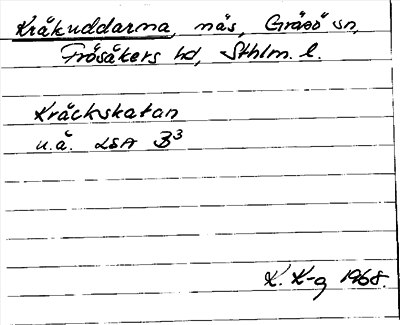 Kråkuddarna, näs, Gräsö sn,
Frösåkers hd, Sthlm. l.
Kräckskatan
u.å. LSA B3
K. K-g 1968.